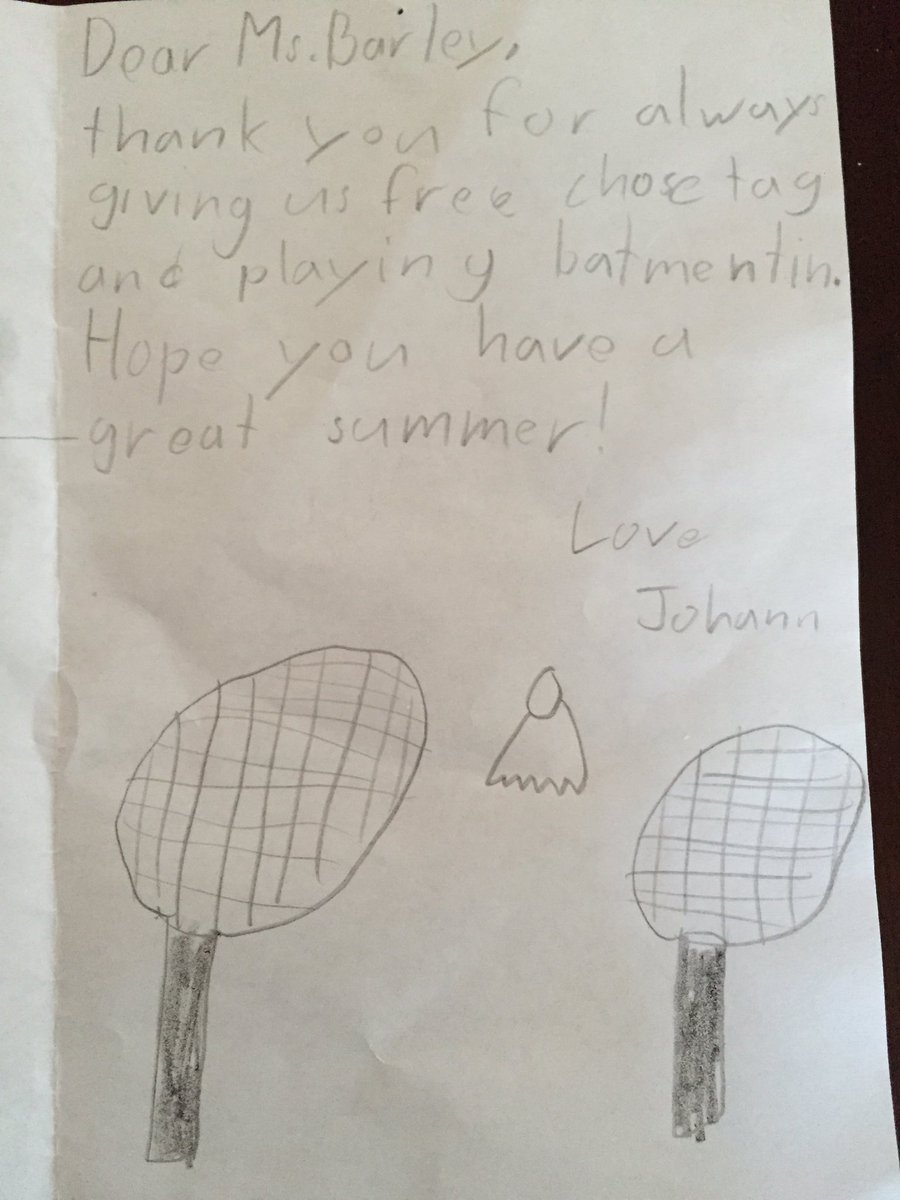 Dear Ms. Barley,
thank you for always
giving us free chose tag
and playing batmentin.
Hope you have a
great summer!
Love
Johann